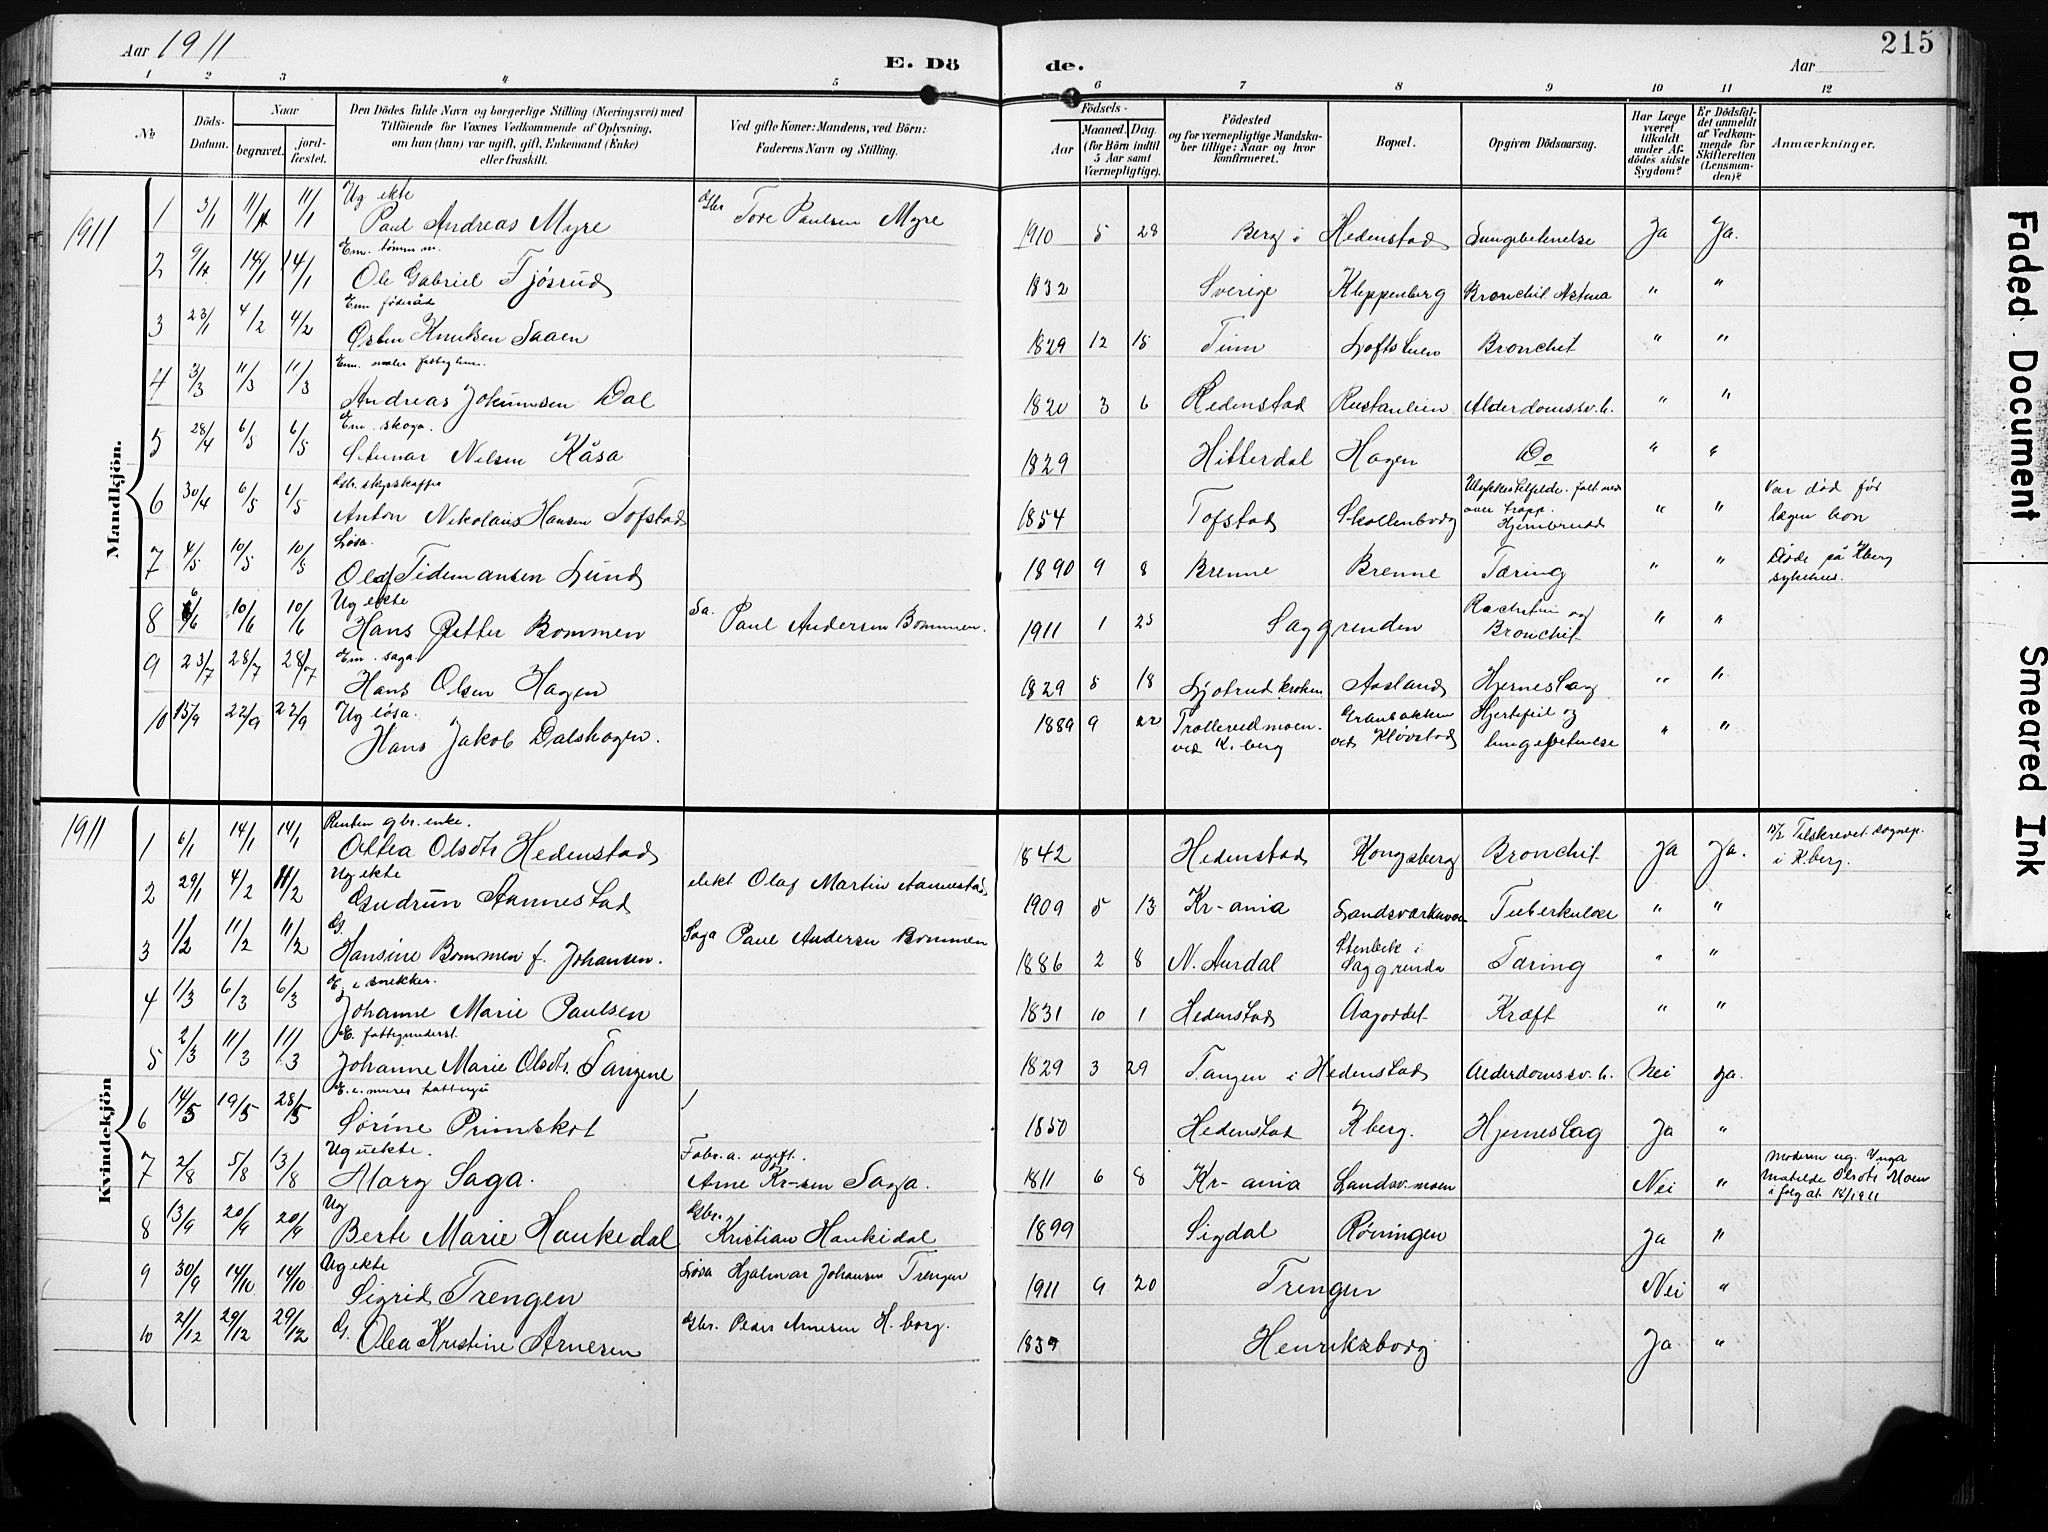 Aar 1911
E. Dö
de.
Aar
215
1 2 3 4 5 6 7 8 9 10 11 12
No
Döds-
Datum.
Naar
begravet.
jord-
fæstet.
Den Dödes fulde Navn og borgerlige Stilling (Næringsvei) med
Tilföiende for Voxnes Vedkommende af Oplysning,
om han (hun) var ugift, gift, Enkemand (Enke)
eller fraskilt.
Ved gifte Koner: Mandens, ved Börn:
Faderens Navn og Stilling.
Födsels-
Aar
Maaned. Dag.
(for Börn indtil
5 Aar samt
Værnepligtige).
Födested
og for værnepligtige Mandska-
ber tillige: Naar og hvor
konfirmeret.
Bopæl.
Opgiven Dödsaarsag.
Har Læge
været
tilkaldt
under Af-
dödes sidste
Sygdom?
Er Dödsfal-
det anmeldt
af Vedkom-
mende for
Skifteretten
(Lensman-
den)?
Anmærkninger.
Mandkjön.
1911
Ug ekte
1 3/1 11/1 11/1 Paul Andreas Myre Gbr Tore Paulsen Myre 1910 5 28 Berg i Hedenstad Lungebetennelse Ja Ja.
2 9/1 14/1 14/1 Ole Gabriel Fjøsrud 1832 Sverige Kleppenberg Bronchit Astma " "
Em. føderåd
3 23/1 4/2 4/2 Østen Knutsen Saaen 1829 12 15 Tinn Loftstuen Bronchit " "
4 3/3 11/3 11/3 Andreas Jokumsen Dal 1820 3 6 Hedenstad Rustanlien Alderdomssv.h. " "
Em. skoga.
5 28/4 6/5 6/5 Steinar Nilsen Kåsa 1829 Hitterdal Hagen Do " "
6 30/4 6/5 6/5 Anton Nikolaus Hansen Tofstad 1854 Tofstad Skollenborg over trapp. Hjernebrudd " " Var død før
lægen kom
Løsa.
7 4/5 10/5 10/5 Olaf Tidemansen Lund 1890 9 8 Brenne Brenne Tæring " " Døde på Kberg
sykehus.
Ug ekte
8 6/6 10/6 10/6 Hans Petter Bommen Sa. Paul Andersen Bommen. 1911 1 25 Saggrenden Rachitin og
Bronchit " "
Em. saga.
9 23/7 28/7 28/7 Hans Olsen Hagen 1829 8 18 Ljøtrudkroken Aasland Hjerneslag " "
Ug løsa.
10 15/9 22/9 22/9 Hans Jakob Dalshagen. 1889 9 22 Trollerudmoen
ved K.berg Granbakken
ved Kløvstad Hjertefeil og
lungebetennelse " "
Kvindekjön
1911
Renten gbr. enke.
1 6/1 14/1 14/1 Oltea Olsdtr Hedenstad 1842 Hedenstad Kongsberg Bronchit Ja Ja. 15/2 Tilskrevet sognep.
i Kberg.
Ug ekte
2 29/1 4/2 11/2 Gudrun Aannestad elekt Olaf Martin Aannestad 1909 5 13 Kr-ania Landsværkmoen Tuberkulose " "
G.
3 1/2 11/2 11/2 Hansine Bommen f. Johansen. Saga Paul Andersen Bommen 1886 2 8 N. Aurdal Stenbek i
Saggrenda Tæring " "
E. e snekker.
4 1/3 6/3 6/3 Johanne Marie Paulsen 1831 10 1 Hedenstad Aagordet Kræft " "
E. fattigunderst.
5 2/3 11/3 11/3 Johanne Marie Olsdtr. Tangene 1829 3 29 Tangen i Hedenstad Alderdomssv.h. Nei Ja.
6 14/5 19/5 28/5 Sørine Primskot 1850 Hedenstad Kberg. Hjerneslag Ja "
Ug uekte.
Fabr.a. ugift.
7 2/8 5/8 13/8 Marg Saga. Arne Kr-sen Saga. 1811 6 8 Kr-ania Landsv.moen Nei " Moderen ug. Inga
Matilde Olsdtr Moen
Ug Gbr.
8 13/9 20/9 20/9 Berte Marie Haukedal Kristian Haukidal 1899 Sigdal Røningen Ja "
Ug ekte
9 30/9 14/10 14/10 Sigrid Trengen Løsa Hjalmar Johansen Trengen 1911 9 20 Trengen Nei "
10 21/12 29/12 29/12 G. Olea Kristine Arnesen Gbr. Peder Arnesen H.borg. 1839 Henriksborg Ja "
Faded Document
Smeared Ink